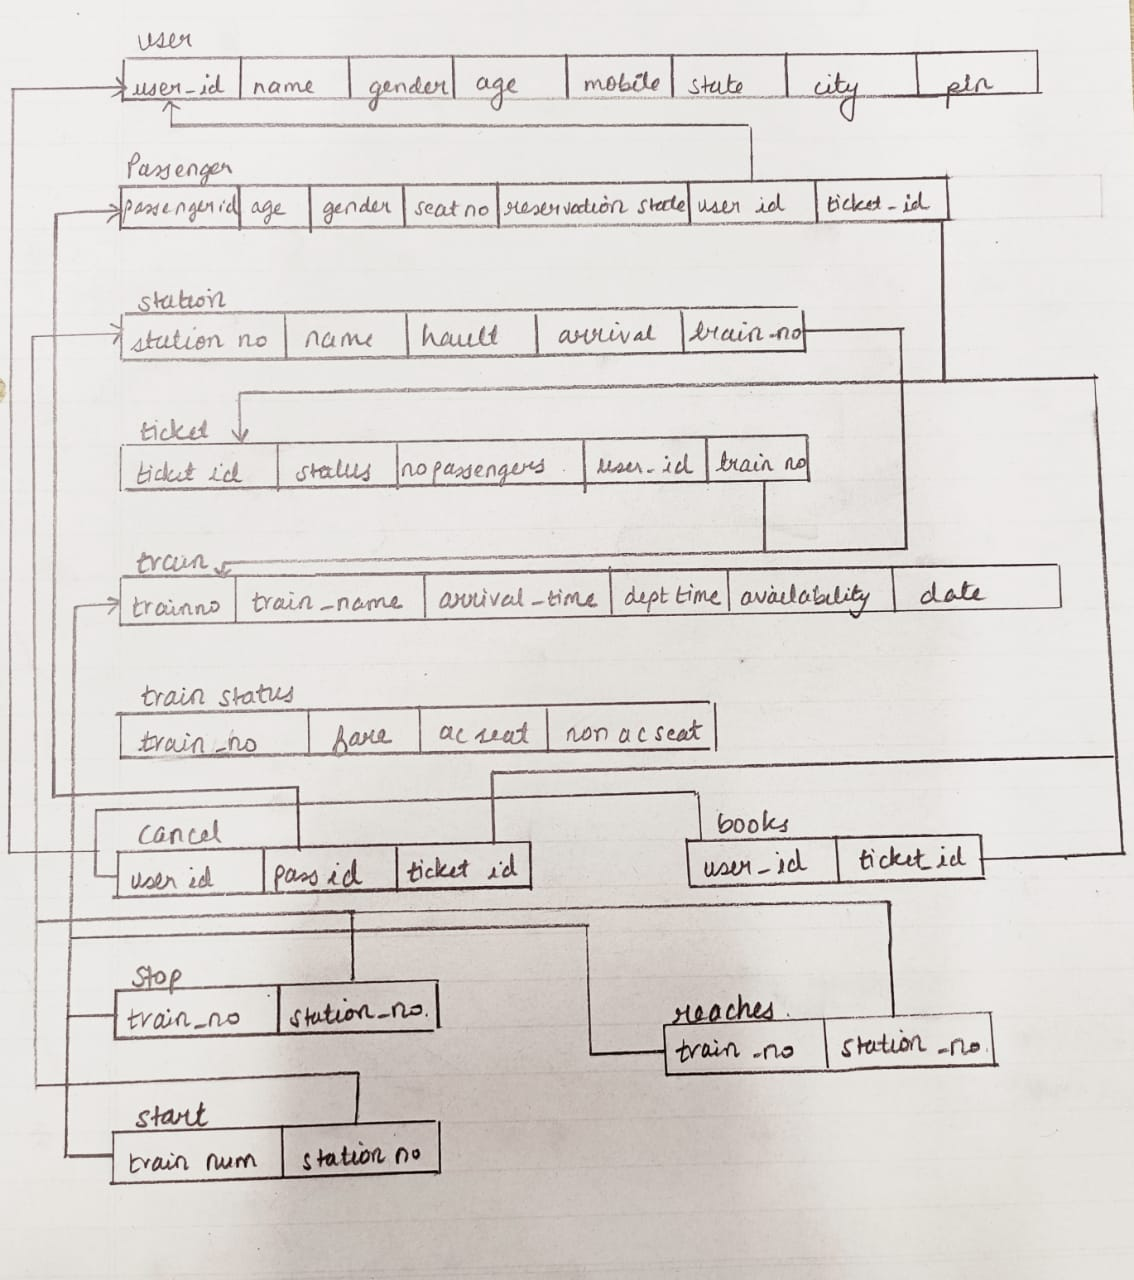 user
user_id name gender age mobile state city pin
Passenger
passengerid age gender seat no reservation state user id ticket_id
station
station no name hault arrival train_no
ticket
ticket id status no passengers. user_id train no
train
trainno train_name arrival_time dept time availability date
train status
train_no fare ac seat non ac seat
cancel
user id pass id ticket id
books
user_id ticket id
stop
train_no station_no.
reaches.
train_no station_no.
start
train num station no